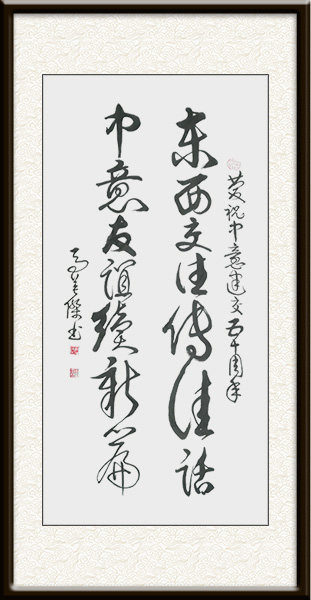 慶祝中意建交五十周年
东西交往传佳话
中意友谊續新篇